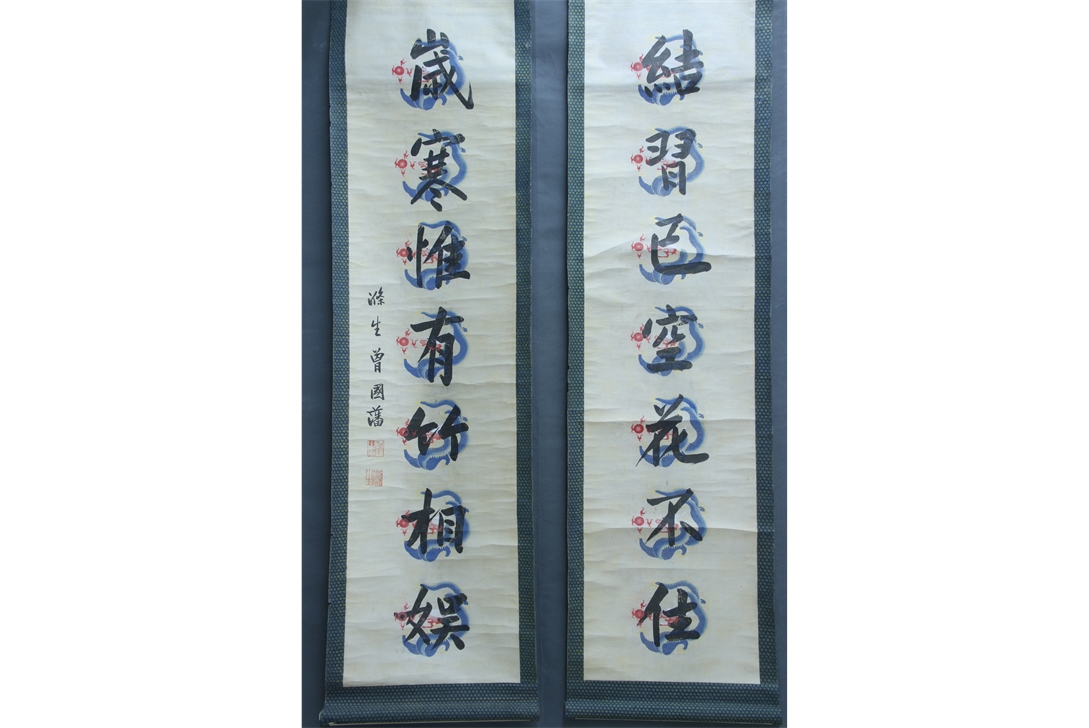 結習已空花不住
歲寒惟有竹相娛
滌生曾國藩